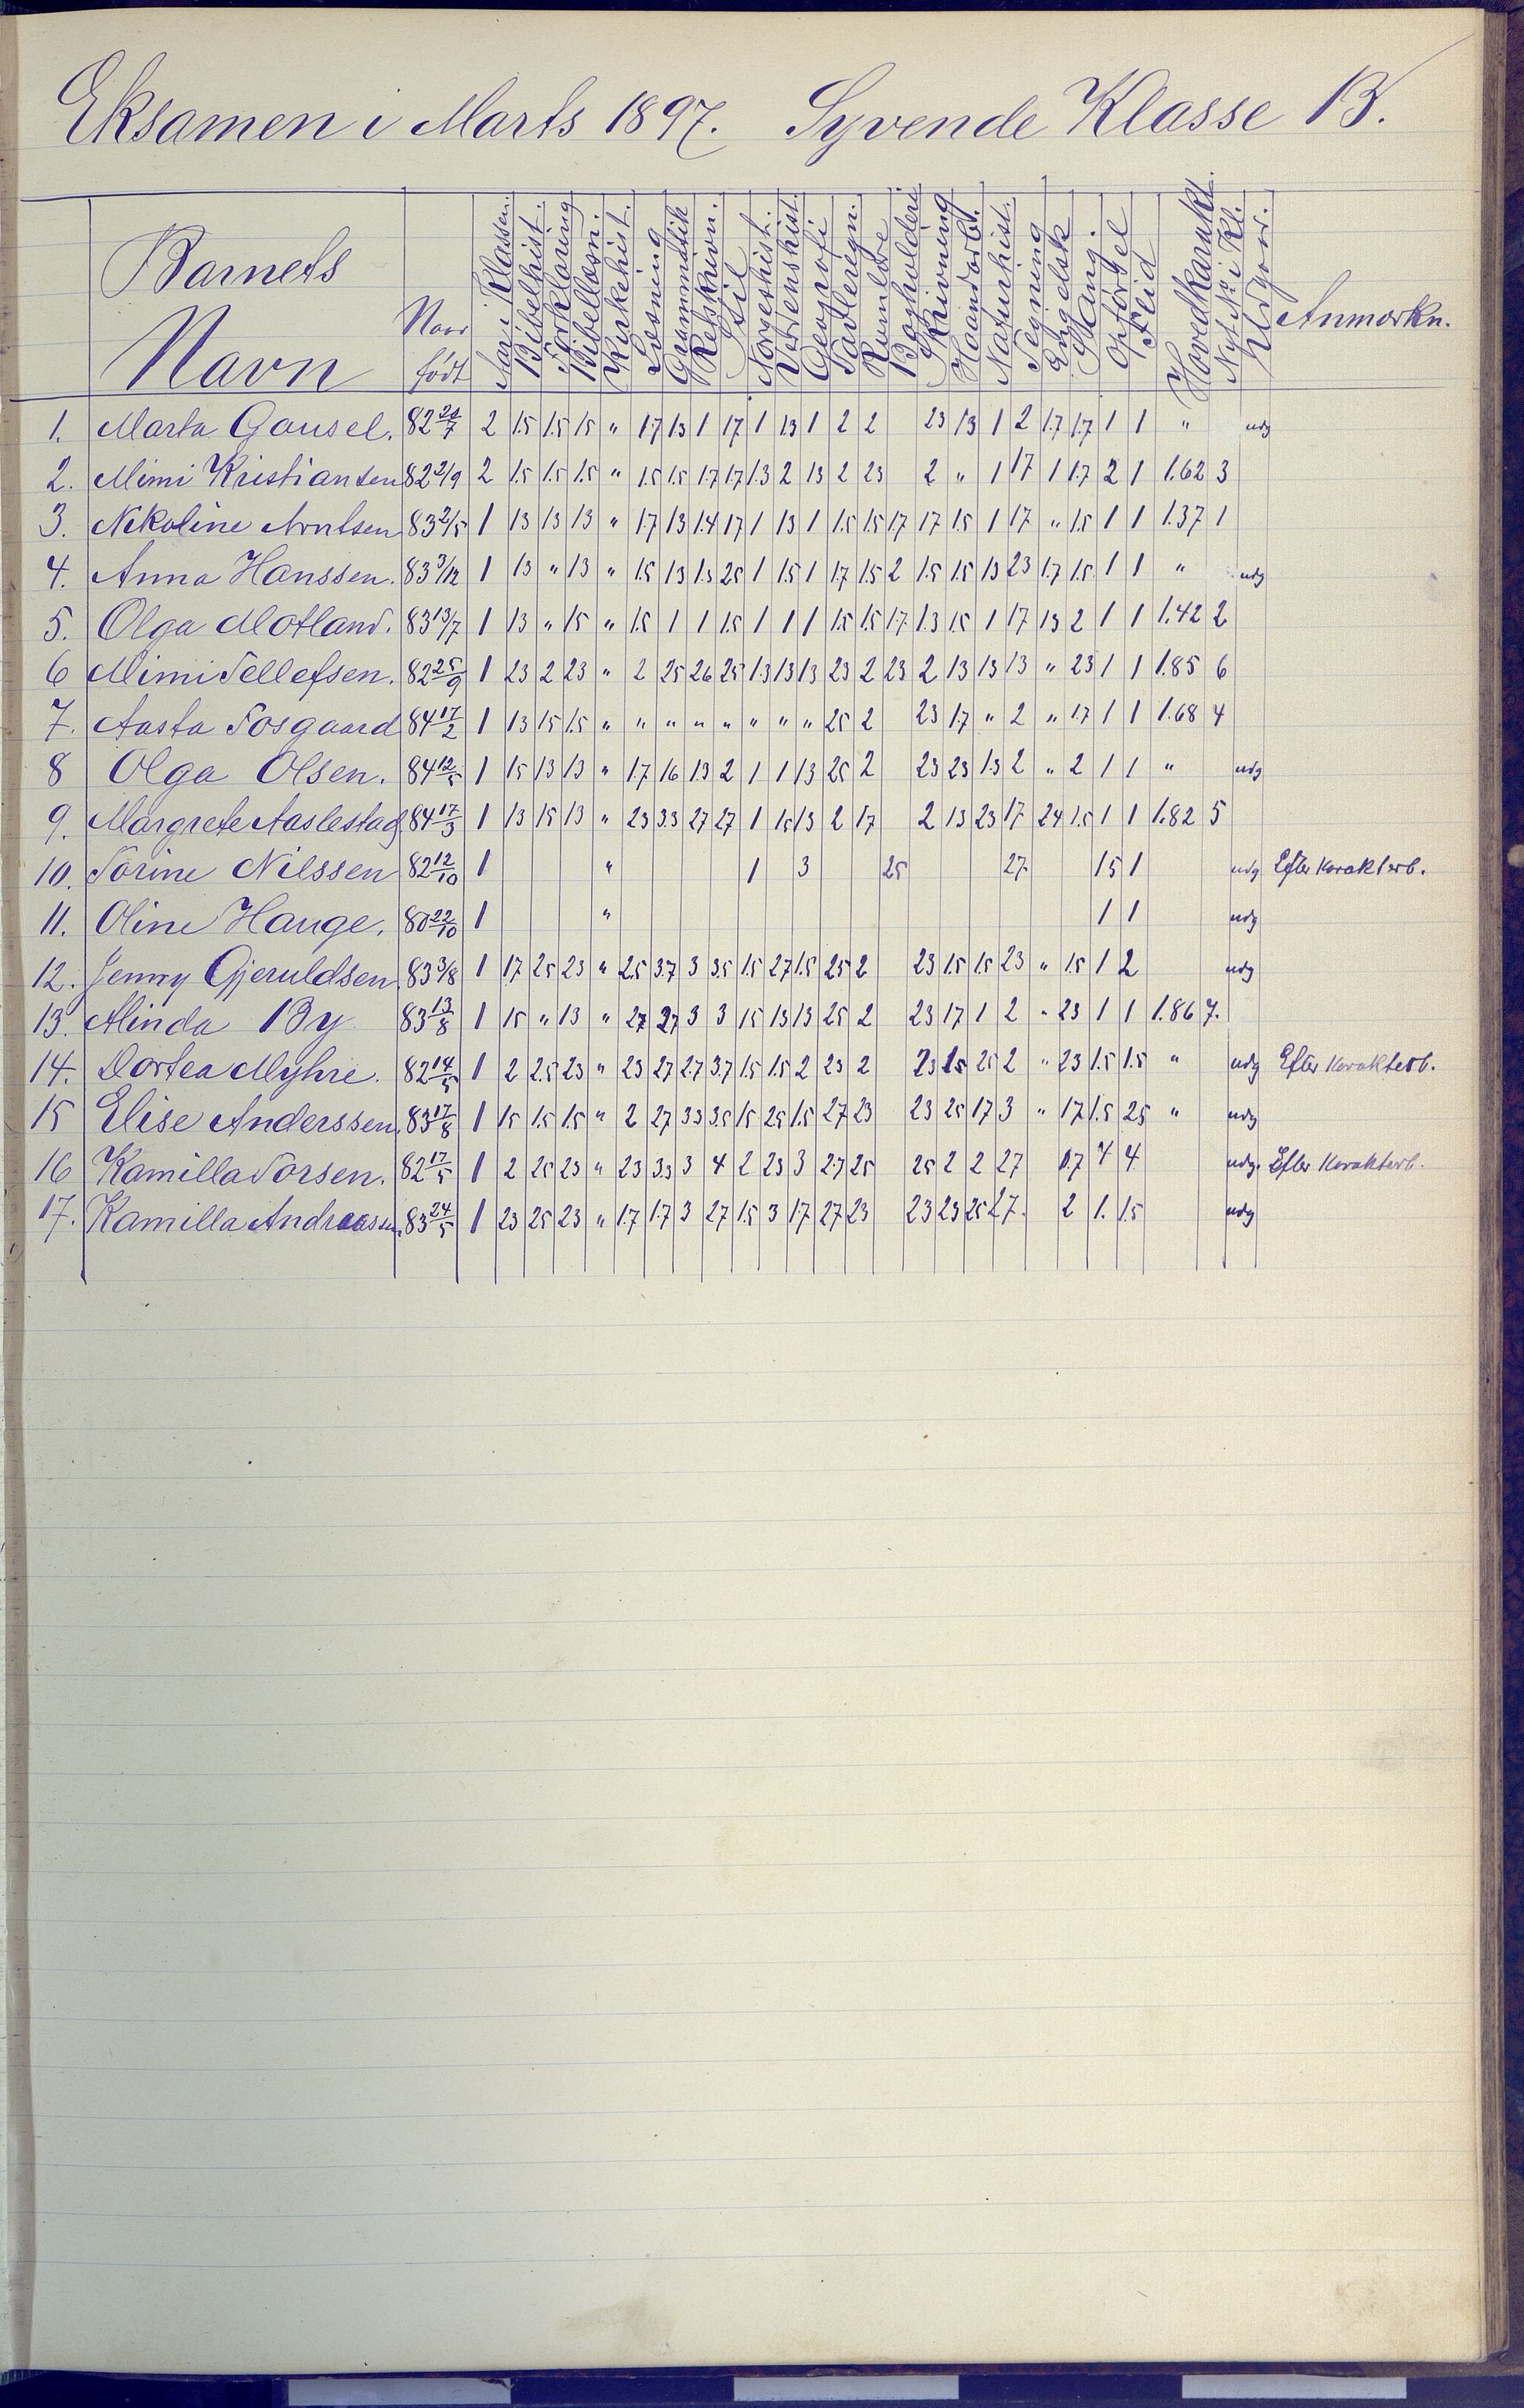 Eksamen i Marts 1897. Syvende Klasse B.
Barnets Navn
Naar født
Aar i Klassen.
Bibelhist.
Forklaring
Bibellæsn.
Kirkehist.
Læsning
Grammatik
Retskrivn.
Stil
Norgeshist.
Verdenshist.
Geografi
Tavleregn.
Rumlære
Bogholderi
Skrivning
Haandarb.
Naturhist.
Tegning
Engelsk
Sang.
Opførsel
Flid
Hovedkarakt.
Nyt No i Kl.
Udgaar.
Anmærkn.
1. Marta Gausel. 82 20/7 2 1.5 1.5 1.5 " 1.7 1.3 1 1.7 1 1.3 1 2 2 2.3 1.3 1 2 1.7 1.7 1 1 " udg
2. Mimi Kristiansen 82 2/9 2 1.5 1.5 1.5 " 1.5 1.5 1.7 1.7 1.3 2 1.3 2 2.3 2 " 1 1.7 1 1.7 2 1 1.62 3
3. Nikoline Arntsen 83 2/5 1 1.3 1.3 1.3 " 1.7 1.3 1.4 1.7 1 1.3 1 1.5 1.5 1.7 1.7 1.5 1 1.7 " 1.5 1 1 1.37 1
4. Anna Hanssen. 83 3/12 1 1.3 " 1.3 " 1.5 1.3 1.3 2.5 1 1.5 1 1.7 1.5 2 1.5 1.5 1.3 2.3 1.7 1.5 1 1 " udg
5. Olga Motland. 83 13/7 1 1.3 " 1.5 " 1.5 1 1 1.5 1 1 1 1.5 1.5 1.7 1.3 1.5 1 1.7 1.3 2 1 1 1.42 2
6 Mimi Tellefsen. 82 25/9 1 2.3 2 2.3 " 2 2.5 2.6 2.5 1.3 1.3 1.3 2.3 2 2.3 2 1.3 1.3 1.3 " 2.3 1 1 1.85 6
7. Aasta Fosgaard 84 17/2 1 1.3 1.5 1.5 " " " " " " " " 2.5 2 2.3 1.7 " 2 " 1.7 1 1 1.68 4
8 Olga Olsen. 84 12/5 1 1.5 1.3 1.3 " 1.7 1.6 1.3 2 1 1 1.3 2.5 2 2.3 2.3 1.3 2 " 2 1 1 " udg
9. Margrete Aaslestad 84 17/3 1 1.3 1.5 1.3 " 2.3 3.3 2.7 2.7 1 1.5 1.3 2 1.7 2 1.3 2.3 1.7 2.4 1.5 1 1 1.82 5
10. Torine Nilssen 82 12/10 1 " 1 3 2.5 2.7 1.5 1 udg Efter Karakterb.
11. Oline Hauge. 80 22/10 1 " 1 1 udg
12. Jenny Gjeruldsen. 83 3/8 1 1.7 2.5 2.3 " 2.5 3.7 3 3.5 1.5 2.7 1.5 2.5 2 2.3 1.5 1.5 2.3 " 1.5 1 2 udg
13. Alinda By 83 13/8 1 1.5 " 1.3 " 2.7 2.7 3 3 1.5 1.3 1.3 2.5 2 2.3 1.7 1 2 " 2.3 1 1 1.86 7.
14. Dortea Myhre. 82 14/5 1 2 2.5 2.3 " 2.3 2.7 2.7 3.7 1.5 1.5 2 2.3 2 2.3 1.5 2.5 2 " 2.3 1.5 1.5 " udg Efter Karakterb.
15 Elise Anderssen. 83 17/8 1 1.5 1.5 1.5 " 2 2.7 3.3 3.5 1.5 2.5 1.5 2.7 2.3 2.3 2.5 1.7 3 " 1.7 1.5 2.5 " udg
16 Kamilla Torsen. 82 17/5 1 2 2.5 2.3 " 2.3 3.3 3 4 2 2.3 3 2.7 2.5 2.5 2 2 2.7 1.7 4 4 udg. Efter Karakterb.
17. Kamilla Andreassen. 83 24/5 1 2.3 2.5 2.3 " 1.7 1.7 3 2.7 1.5 3 1.7 2.7 2.3 2.3 2.3 2.5 2.7. 2 1. 1.5 udg